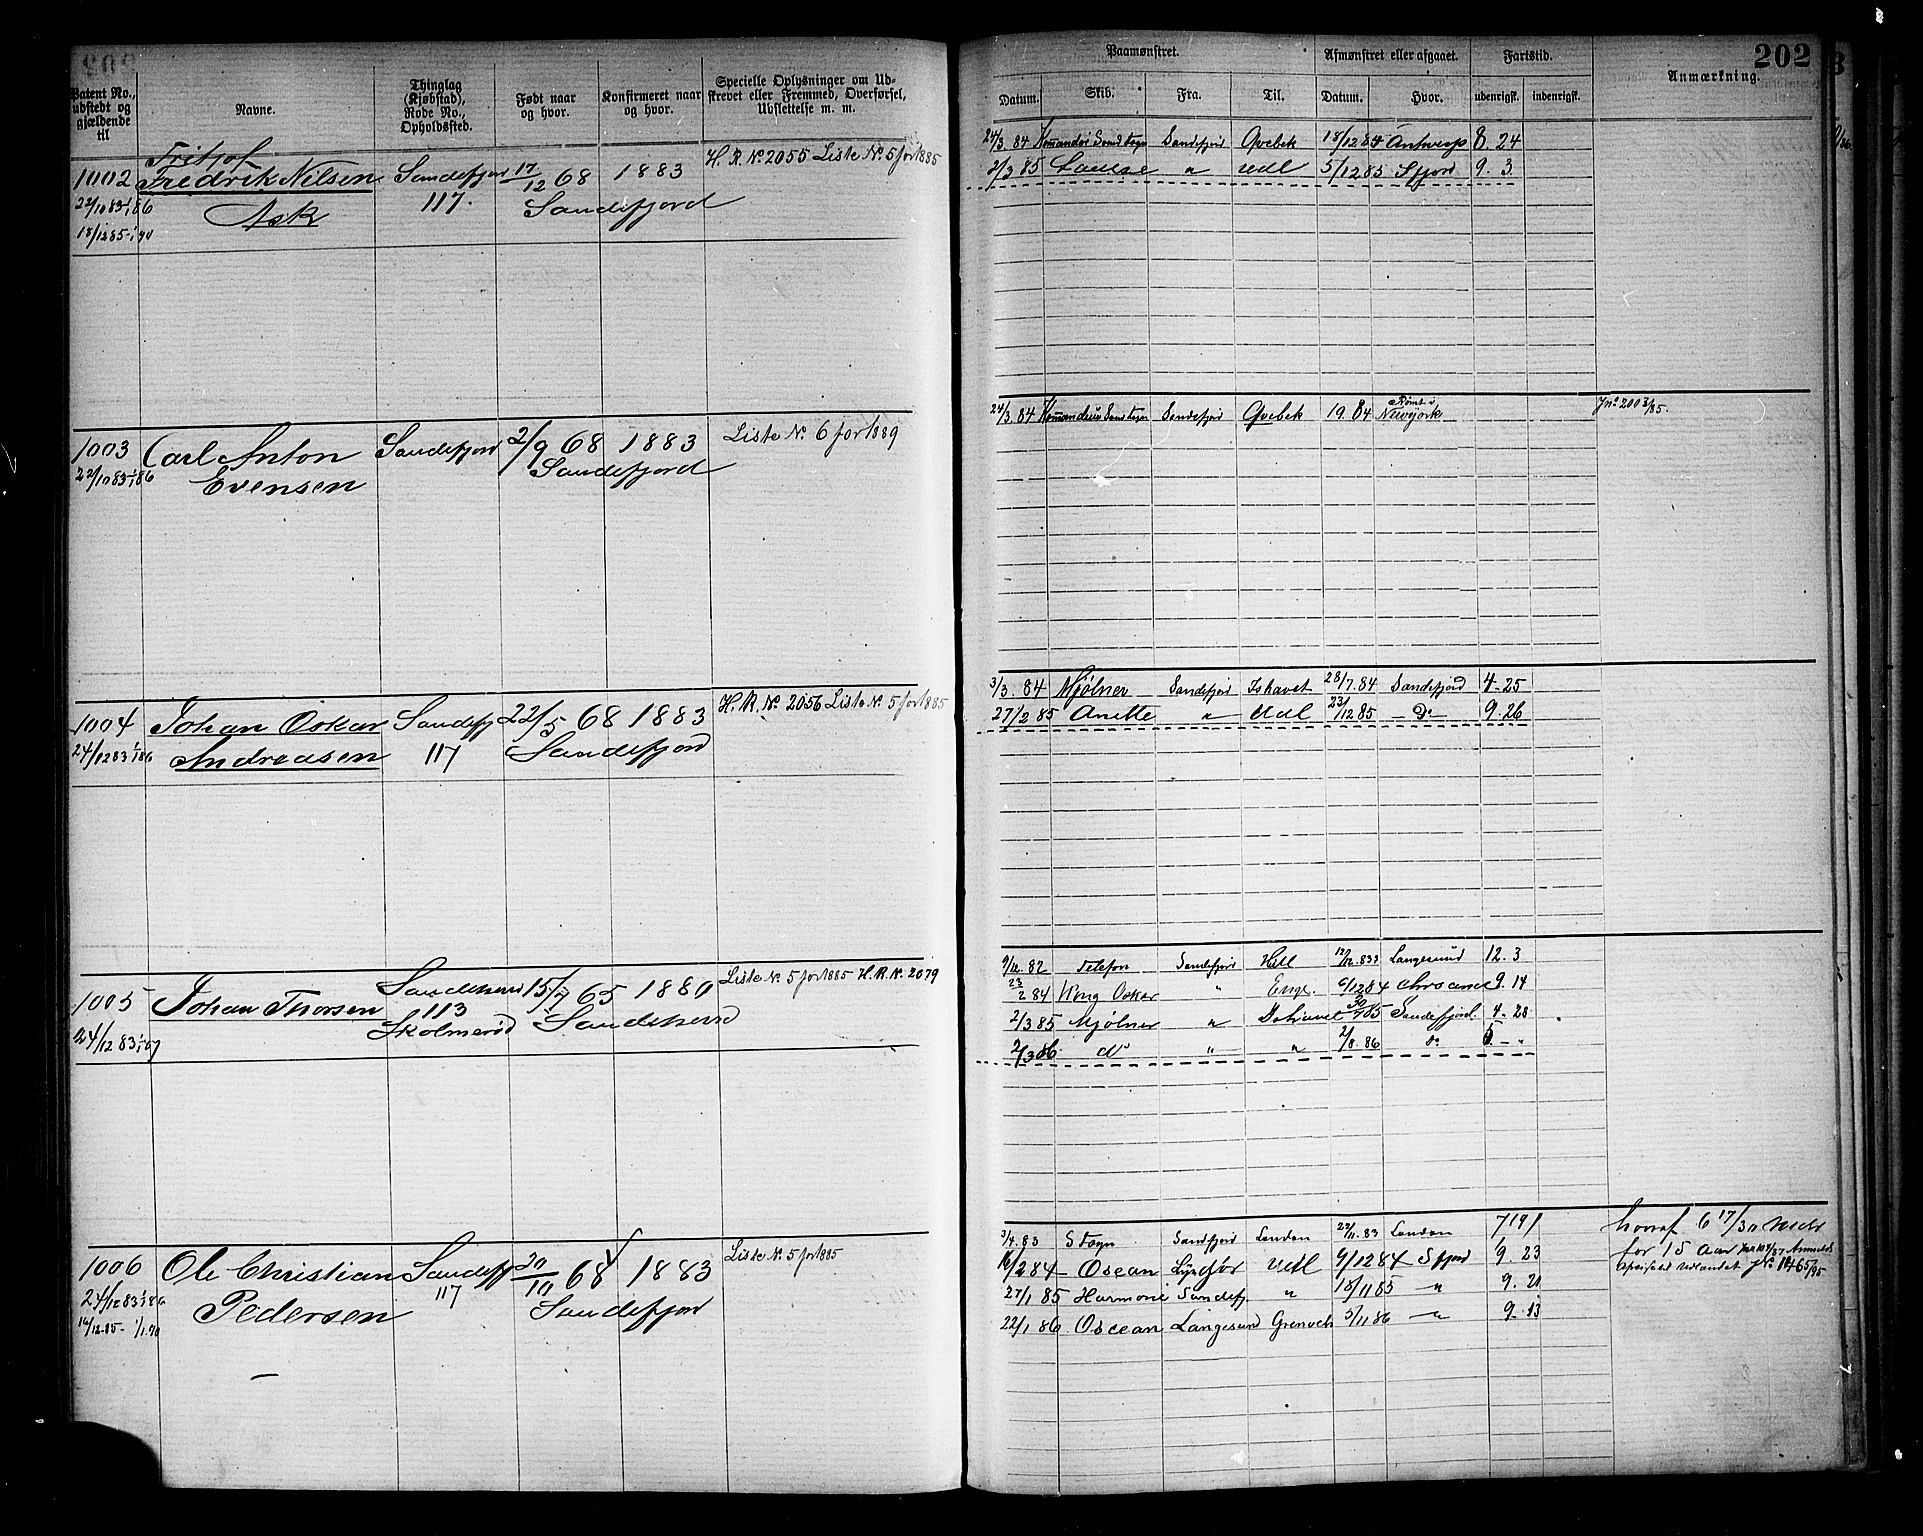 202
Patent No., udstedt og gjældende til
Navne.
Thinglag (Kjøbstad), Rode No., Opholdssted.
Født naar og hvor.
Konfirmeret naar og hvor.
Specielle Oplysninger om Udskrevet eller Fremmed, Overførsel, Udslettelse m. m.
Paamønstret.
Afmønstret eller afgaaet.
Fartstid.
Anmærkning.
Datum. Skib. Fra. Til. Datum. Hvor. udenrigsk. indenrigsk.
Fritjof
1002 Fredrik Nilsen Sandefjord 17/12 68 1883 H. R. No 2055 Liste No. 5 for 1885
22/10 83 1/1 86 Ask 117. Sandefjord
18/12 85 - 1/1 90
24/3. 84 Sandefjord Qvebek 18/12 84 Antverp 8. 24
2/3 85 Louise " Udl 5/12 85 Sfjord 9. 3.
1003 Carl Anton Sandefjord 2/9 68 1883 Liste No. 6 for 1889
22/10 83 1/1 86 Evensen Sandefjord
24/3. 84 Sandefjord Qvebek 19. 84 Rømt i Newyork
Jno 2003/85.
1004 Johan Oskar Sandefj 22/5 68 1883 H. R. No. 2056 Liste No. 5 for 1885
24/12 83 1/1 86 Andreasen 117 Sandefjord
3/3. 84 Mjølner Sandefjord Ishavet 28/7. 84 Sandefjord 4-25
27/2 85 Anette " Udl 23/12 85 - Do - 9. 26
1005 Johan Thorsen Sandeherred 15/7 65 1880 Liste No. 5 for 1885 H. R. No. 2079
24/12 83 113 Skolmerød Sandeherred
9/12. 82 Telefon Sandefjord Langesund 12. 3
23/2 84 Kong Oskar " Engl. 6/12 84 9. 14
2/3 85 Mjølner " Ishavet Sandefjord. 4-28
2/3 86 do " " 2/8. 86 do
1006 Ole Christian Sandefj 20/10 64 1883 Liste No. 5 for 1885
24/12 83 1/1 86 Pedersen 117 Sandefjord
16/12. 85 - 1/1. 90
3/4. 83 Sandefjord London 22/11. 83 London
16/2 84 Oscean Lyngør Udl 9/12 84 Sfjord 9. 23
27/1 85 Harmonie Sandefj. " 18/11 85 " 9. 20
22/1 86 Oscean Langesund Grenoch 5/11 86 " 9. 13
hvoraf 6 17/30
for 15 Aar